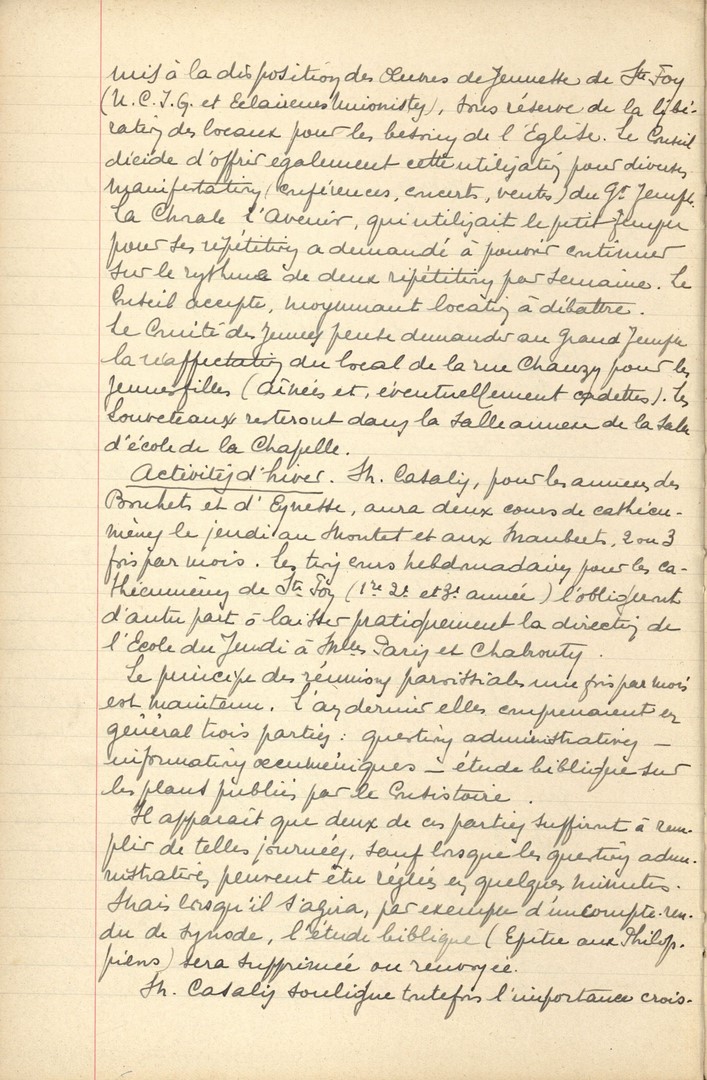 mis à la disposition des Œuvres de Jeunesse de Ste Foy
(U.C.J.G. et Eclaireurs Unionistes), sous réserve de la libé-
ration des locaux pour les besoins de l'Eglise. Le Conseil
décide d'offrir également cette utilisation pour diverses
manifestations (conférences, concerts, ventes) du Gd Temple.
La Chorale l'Avenir, qui utilisait le petit Temple
pour ses répétitions a demandé à pouvoir continuer
sur le rythme de deux répétitions par semaine. Le
Conseil accepte, moyennant location à débattre.
Le Comité des Jeunes pense demander au Grand Temple
la réaffectation du local de la rue Chanzy pour les
Jeunes filles (aînées et, éventuellement cadettes). Les
Louveteaux resteront dans la salle annexe de la salle
d'école de la Chapelle.
Activités d'hiver. M. Casalis, pour les annexes des
Bouhets et d'Eynesse, aura deux cours de catéchu-
mènes le jeudi au Montet et aux Mauberts, 2 ou 3
fois par mois. Les trois cours hebdomadaires pour les ca-
théchumènes de Ste Foy (1re 2e et 3e année) l'obligeront
d'autre part à laisser pratiquement la direction de
l'Ecole du Jeudi à Melles Paris et Chabrouty.
Le principe des réunions paroissiales une fois par mois
est maintenu. L'an dernier elles comprenaient en
général trois parties : questions administratives —
informations œcuméniques — étude biblique sur
les plans publiés par le Consistoire.
Il apparaît que deux de ces parties suffiront à rem-
plir de telles journées, sauf lorsque les questions admi-
nistratives peuvent être réglées en quelques minutes.
Mais lorsqu'il s'agira, par exemple d'un compte-ren-
du de synode, l'étude biblique (Epître aux Philip-
piens) sera supprimée ou renvoyée.
M. Casalis souligne toutefois l'importance crois-